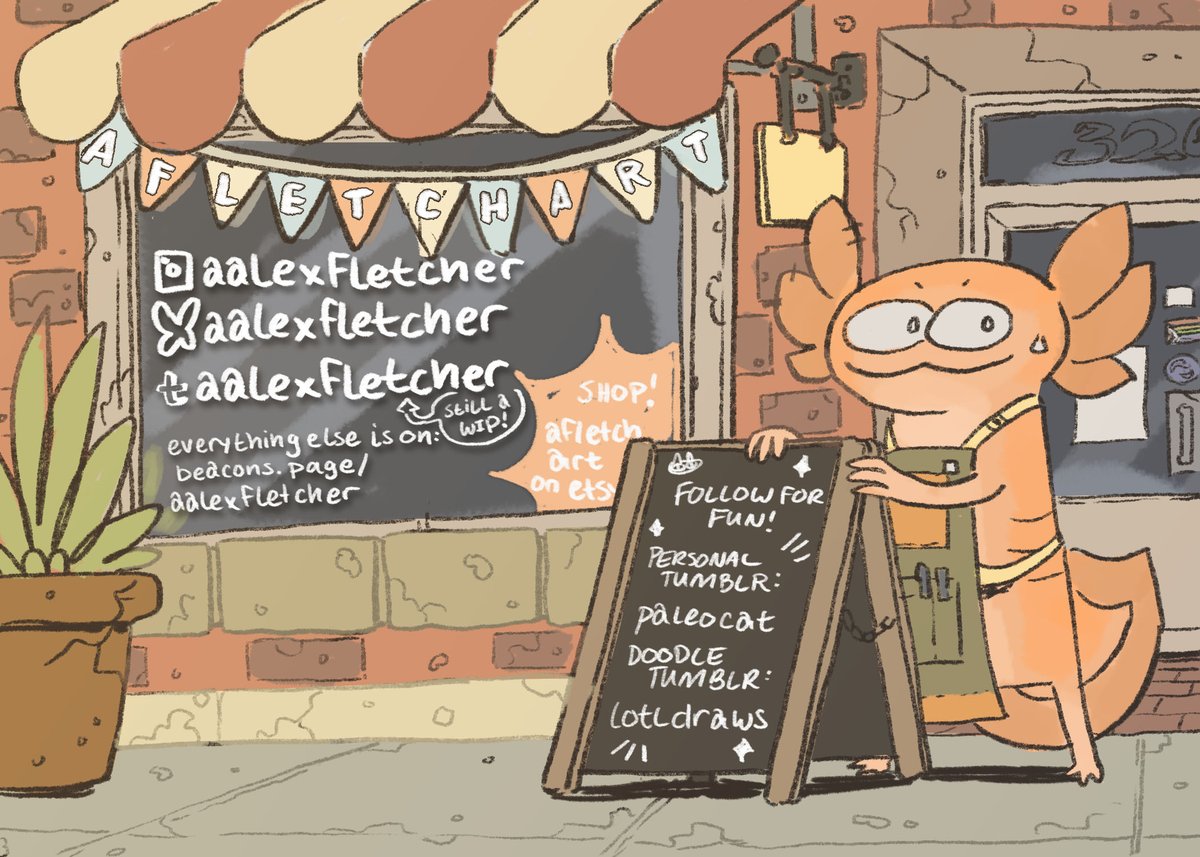 AFLETCHART
aalexfletcher
aalexfletcher
aalexfletcher
still a
WIP!
everything else is on:
beacons.page/
aalexfletcher
SHOP!
afletch
art
on etsy
FOLLOW FOR
FUN!
PERSONAL
TUMBLR:
paleocat
DOODLE
TUMBLR:
lotldraws